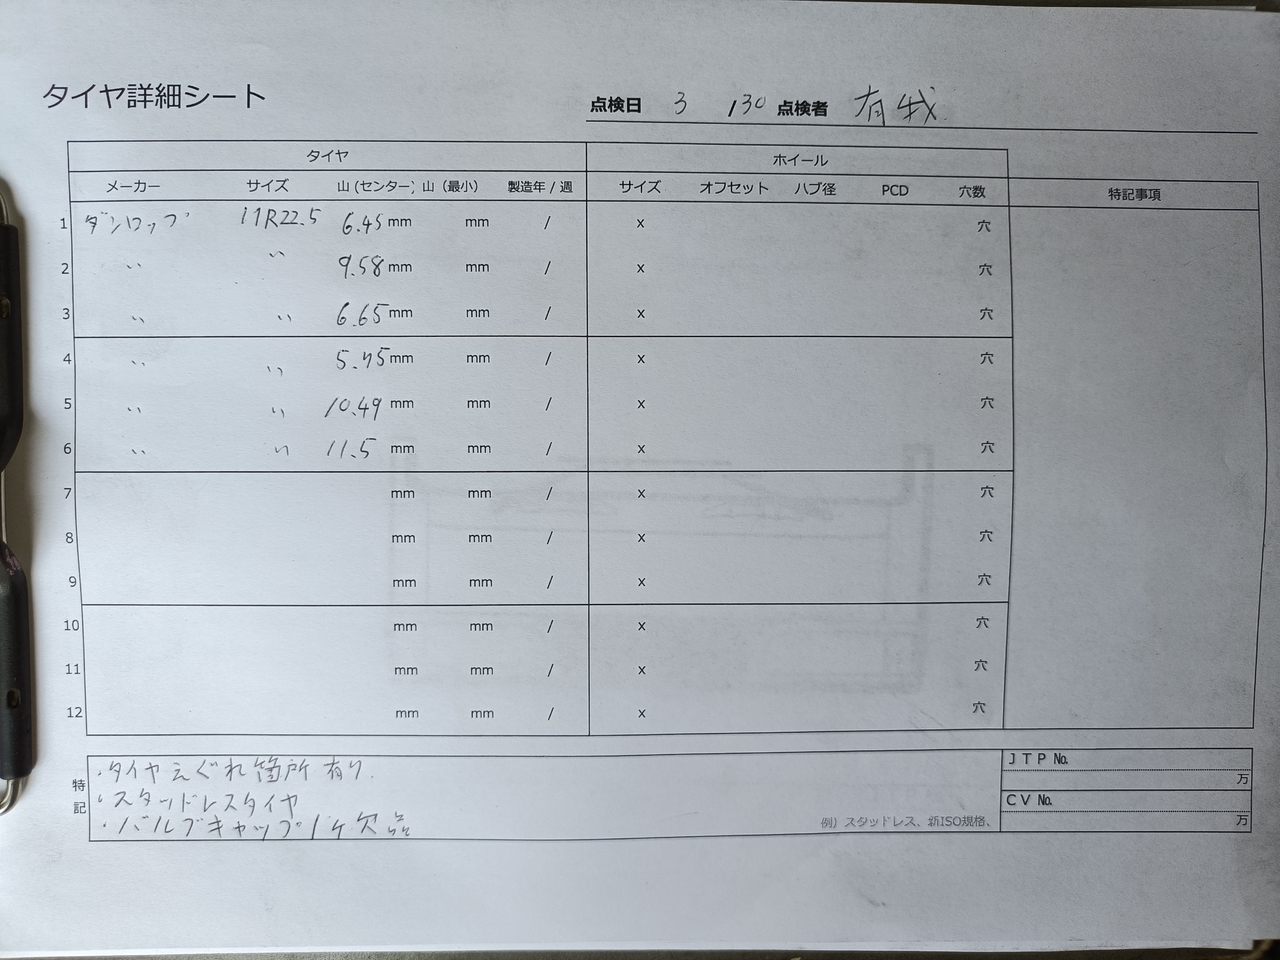 タイヤ詳細シート
点検日 3 /30 点検者 有我
タイヤ ホイール
メーカー サイズ 山(センター) 山（最小） 製造年 / 週 サイズ オフセット ハブ径 PCD 穴数 特記事項
1 ダンロップ 11R22.5 6.45 mm mm / x 穴
2 〃 〃 9.58 mm mm / x 穴
3 〃 〃 6.65 mm mm / x 穴
4 〃 〃 5.75 mm mm / x 穴
5 〃 〃 10.49 mm mm / x 穴
6 〃 〃 11.5 mm mm / x 穴
7 mm mm / x 穴
8 mm mm / x 穴
9 mm mm / x 穴
10 mm mm / x 穴
11 mm mm / x 穴
12 mm mm / x 穴
特記
・タイヤえぐれ箇所有り
・スタッドレスタイヤ
・バルブキャップ1ヶ欠品
例）スタッドレス、新ISO規格、
ＪＴＰ №
万
ＣＶ №
万